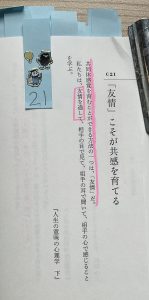 021
「友情」こそが共感を育てる
共同体感覚を育むことができる方法の一つは、「友情」だ。
私たちは、友情を通して、相手の目で見て、相手の耳で聞いて、相手の心で感じること
を学ぶ。
『人生の意味の心理学 下』
21